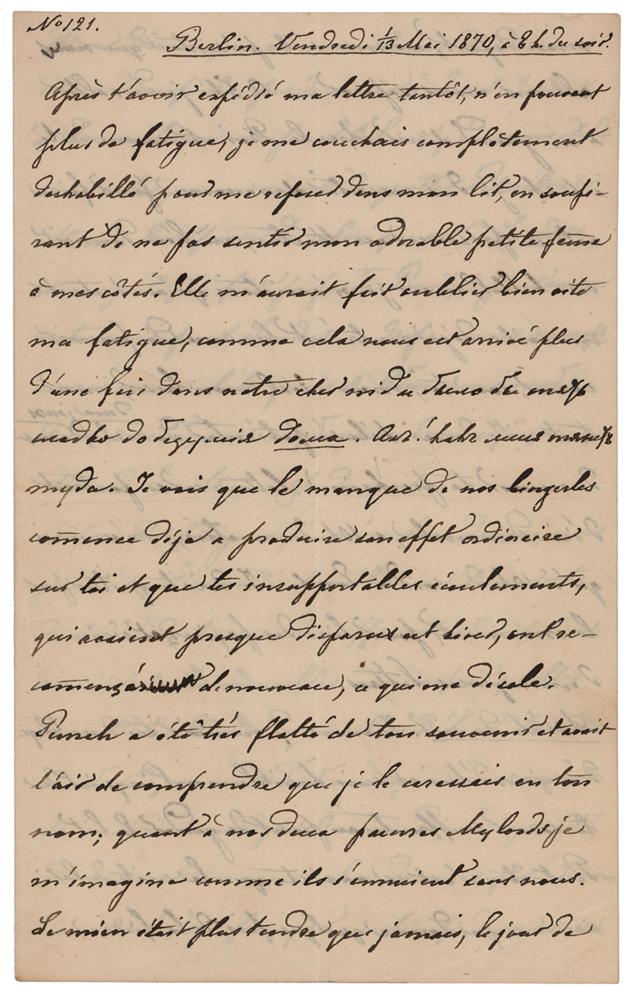 No 121.
Berlin. Vendredi 1/13 Mai 1870, à 8 h. du soir.
Après t'avoir expédié ma lettre tantôt, n'en pouvant
plus de fatigue, je me couchais complètement
deshabillé pour me reposer dans mon lit, en soupi-
rant de ne pas sentir mon adorable petite femme
à mes côtés. Elle m'aurait fait oublier bien vite
ma fatigue, comme cela nous est arrivé plus
d'une fois dans notre cher nid
дома.
туда. Je vois que le manque de nos bingerles
comence déja a produire son effet ordinaire
sur toi et que tes insupportables écoulements,
qui avaient presque disparus cet hiver, ont re-
comencé de nouveau, ce qui me désole.
Punch a été très flatté de ton souvenir et avait
l'air de comprendre que je le caressais en ton
nom; quant à nos deux pauvres Mylords je
m'imagine comme ils s'ennuient sans nous.
Le mien était plus tendre que jamais, le jour de